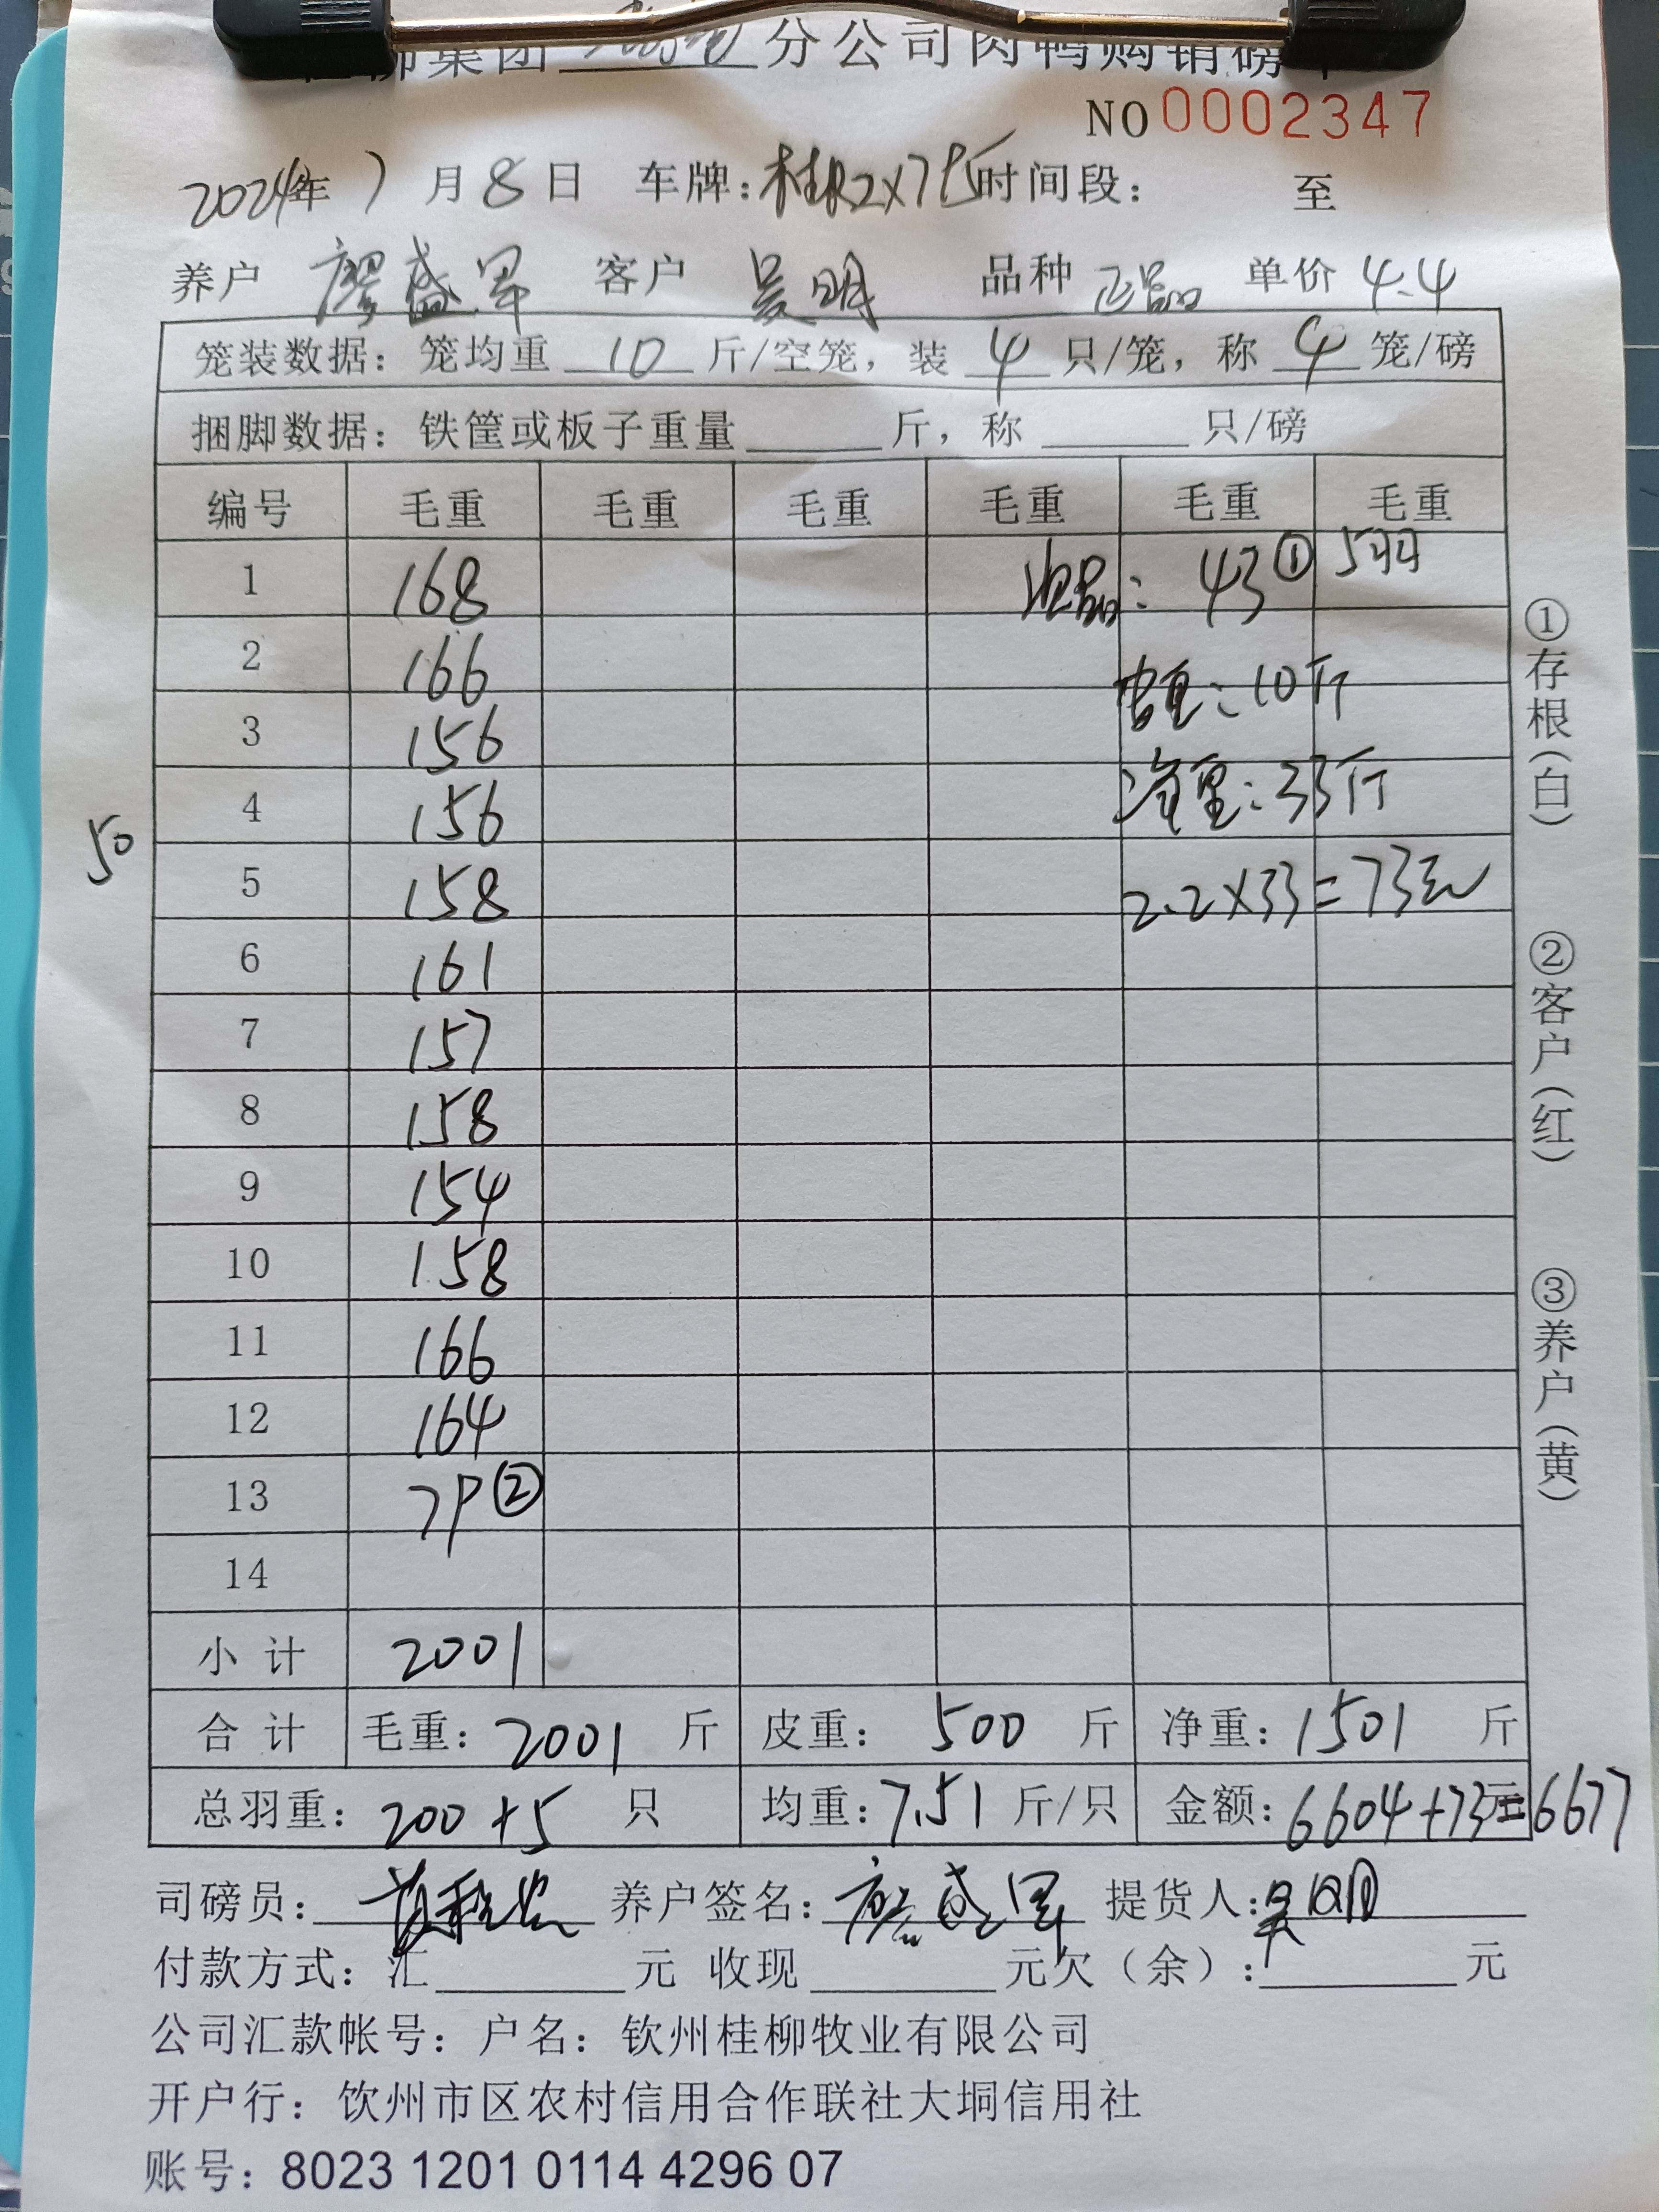 集团 分公司肉鸭购销磅
NO 0002347
2024年 7 月 8 日 车牌: 时间段: 至
养户 廖盛军 客户 吴明 品种 正品 单价 4.4
笼装数据: 笼均重 10 斤/空笼, 装 4 只/笼, 称 4 笼/磅
捆脚数据: 铁筐或板子重量 斤, 称 只/磅
编号 毛重 毛重 毛重 毛重 毛重 毛重
1 168 品: 43① 5羽
2 166 皮重: 10斤
3 156
4 156 净重: 33斤
50
5 158 2.2×33=73元
6 161
7 157
8 158
9 154
10 158
11 166
12 164
13 79②
14
小计 2001
合计 毛重: 2001 斤 皮重: 500 斤 净重: 1501 斤
总羽重: 200+5 只 均重: 7.51 斤/只 金额: 6604+73元=6677
①存根(白)
②客户(红)
③养户(黄)
司磅员: 养户签名: 廖盛军 提货人: 吴明
付款方式: 汇 元 收现 元欠(余): 元
公司汇款帐号: 户名: 钦州桂柳牧业有限公司
开户行: 钦州市区农村信用合作联社大垌信用社
账号: 8023 1201 0114 4296 07